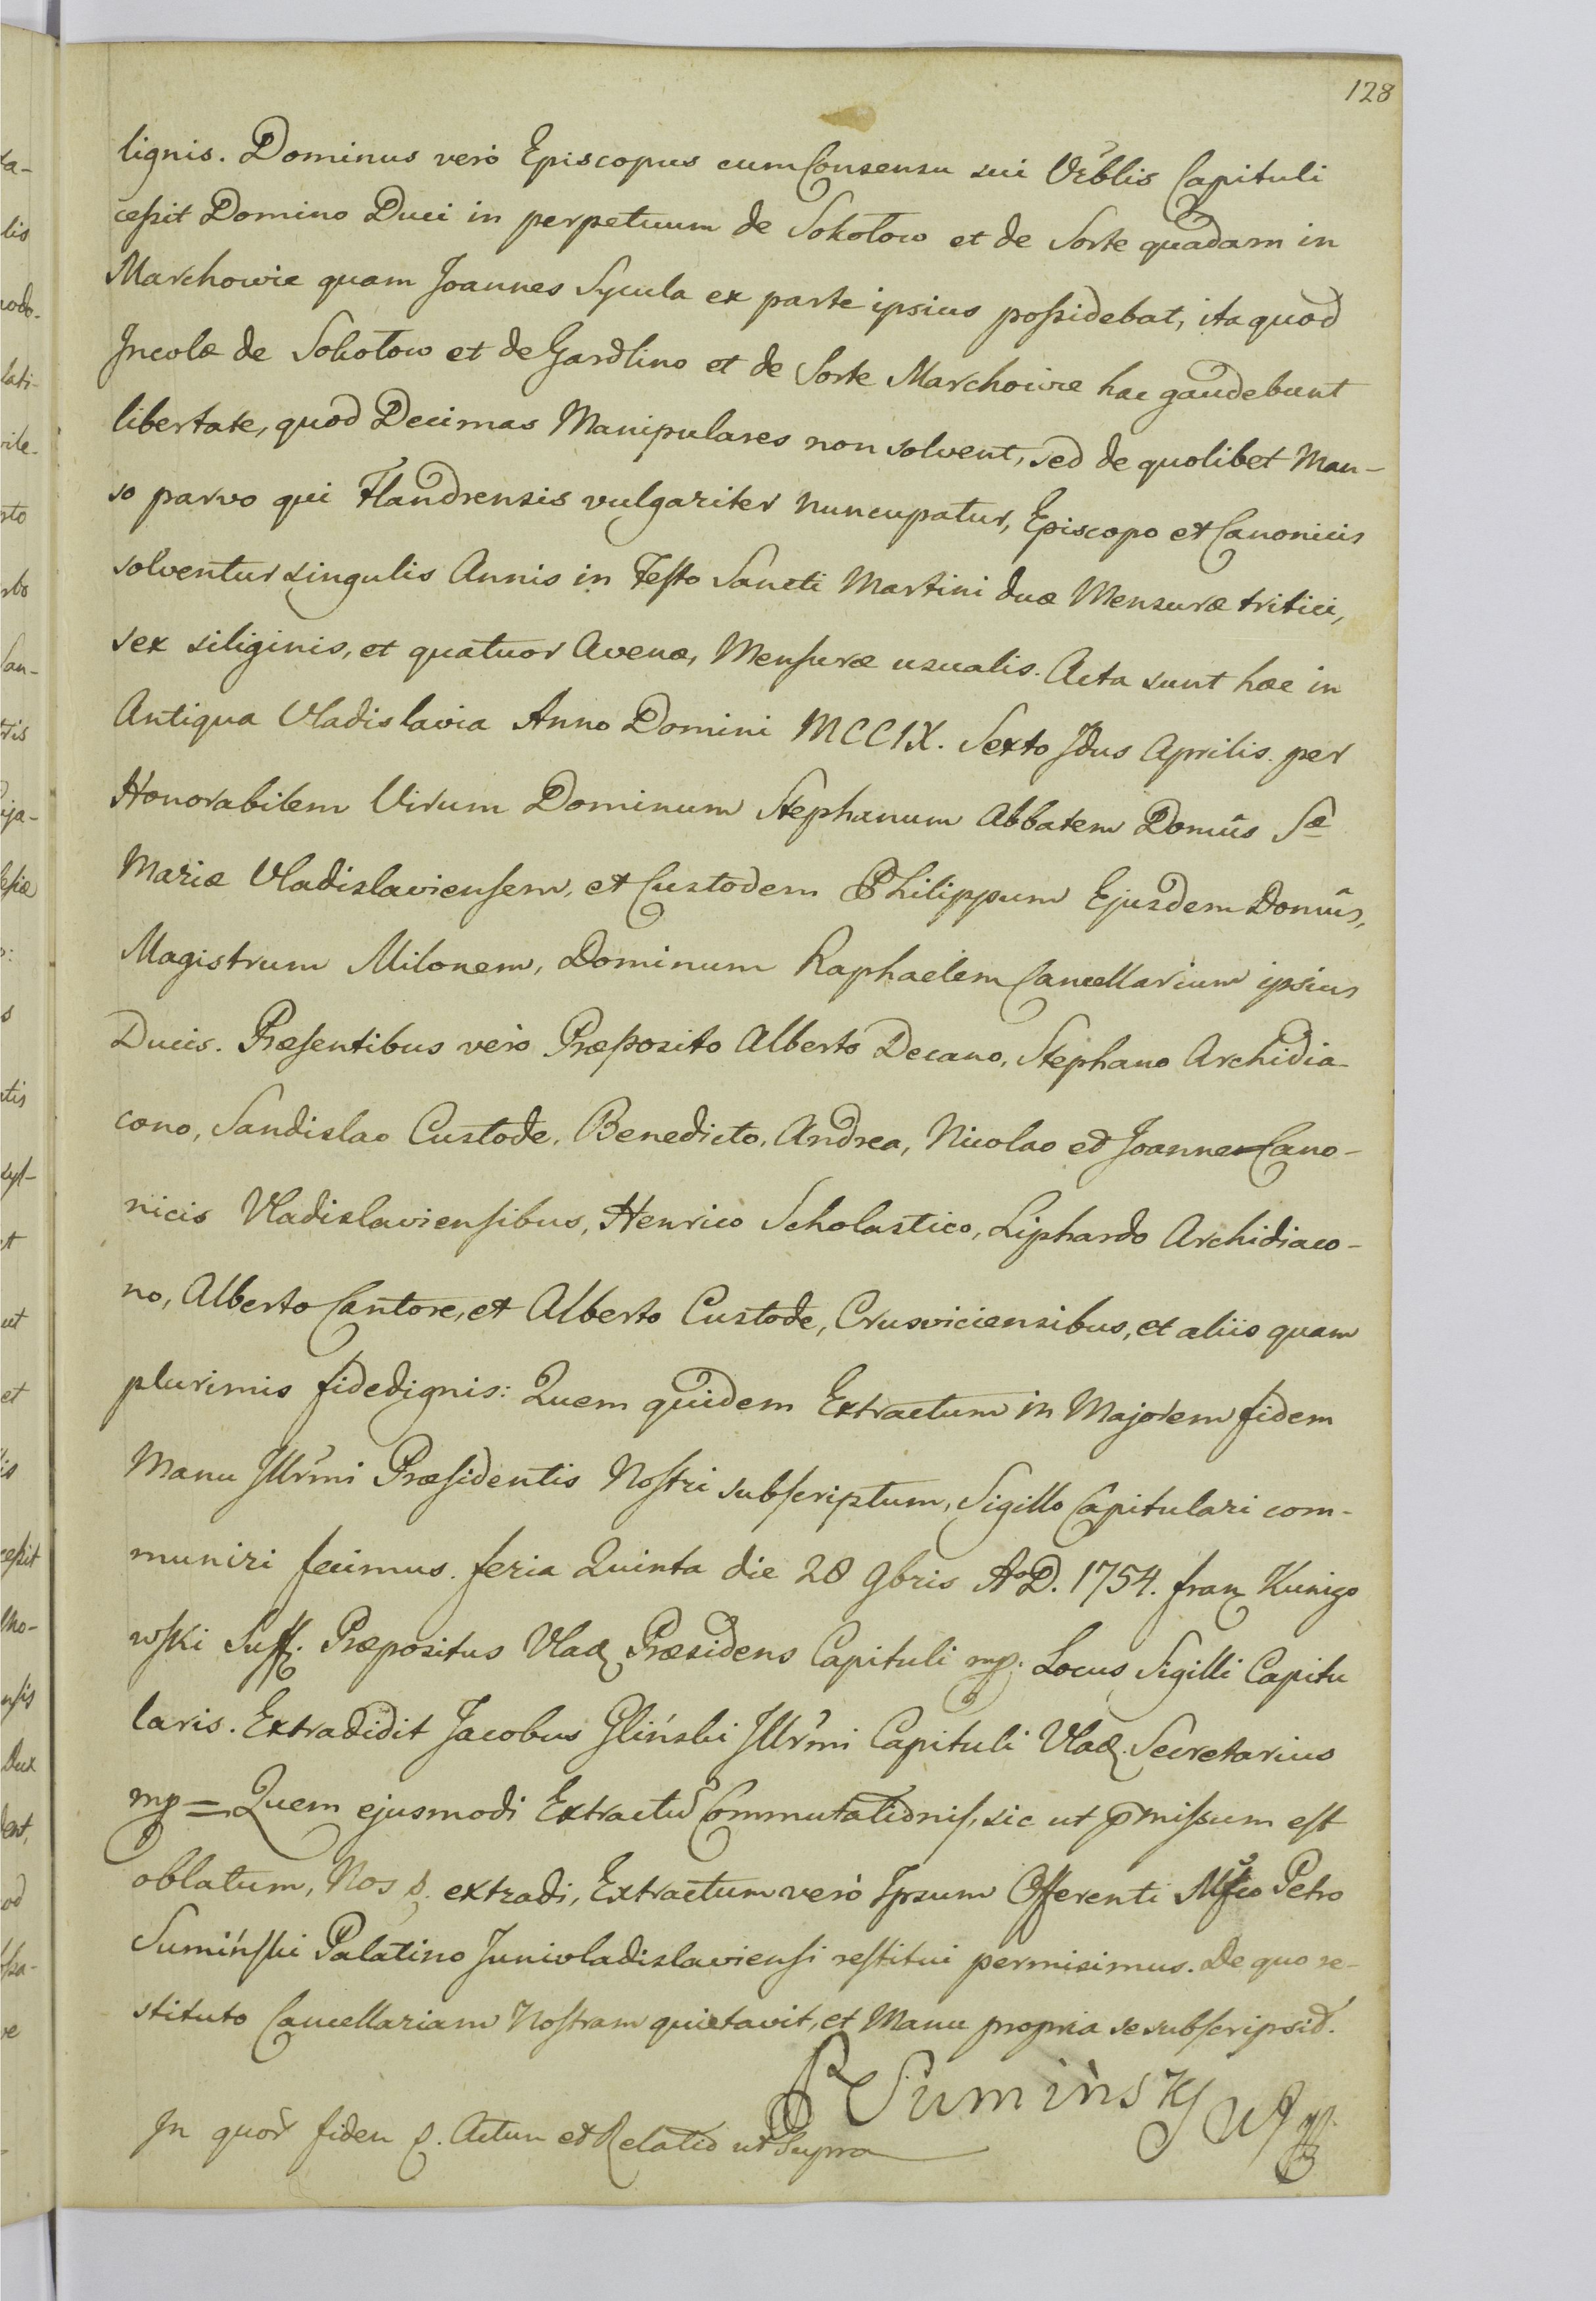 128
lignis. Dominus verò Episcopus cum Consensu sui Vrblis Capituli
ceſsit Domino Duci in perpetuum de Sokołow et de Sorte quadam in
Marchowie quam Joannes Sycula ex parte ipsius poſsidebat, ita quod
Incolæ de Sokołow et de Gardlino et de Sorte Marchowie hac gaudebunt
libertate, quod Decimas Manipulares non solvent, sed de quolibet Man-
so parvo qui Flandrensis vulgariter nuncupatur, Episcopo et Canonicis
solventur singulis Annis in Feſto Sancti Martini duæ Mensuræ tritici,
sex siliginis, et quatuor Avenæ, Menſuræ usualis. Acta sunt hæc in
Antiqua Vladislavia Anno Domini MCCIX. Sexto Idus Aprilis. per
Honorabilem Virum Dominum Stephanum Abbatem Domûs Sæ
Mariæ Vladislavienſem, et Custodem Philippum Ejusdem Domûs,
Magistrum Milonem, Dominum Raphaelem Cancellarium ipsius
Ducis. Præſentibus verò Præposito Alberto Decano, Stephano Archidia-
cono, Sandislao Custode, Benedicto, Andrea, Nicolao ed Joanne Cano-
nicis Vladislavienſibus, Henrico Scholastico, Liphardo Archidiaco-
no, Alberto Cantore, et Alberto Custode, Crusviciensibus, et aliis quam
plurimis fidedignis: Quem quidem Extractum in Majorem fidem
Manu Illrmi Præſidentis Noſtri subſcriptum, Sigillo Capitulari com-
muniri fecimus. feria Quinta die 28 9bris AoD. 1754. Franz Kunigo
wſki Suff. Præpositus Vlad Præsidens Capituli mp. Locus Sigilli Capitu
laris. Extradidit Jacobus Gliński Illrmi Capituli Vlad. Secretarius
mp = Quem ejusmodi Extractũ Commutationiſ, sic ut pmiſsum eſt
oblatum, Nos d. extradi, Extractum verò Ipsum Offerenti Mfco Petro
Sumińſki Palatino Junivladislavienſi reſtitui permisimus. De quo re-
stituto Cancellariam Noſtram quietavit, et Manu propria se subſcripsid.
P Sumińsky
In quor fidem Actum ed Relatio ut Supra